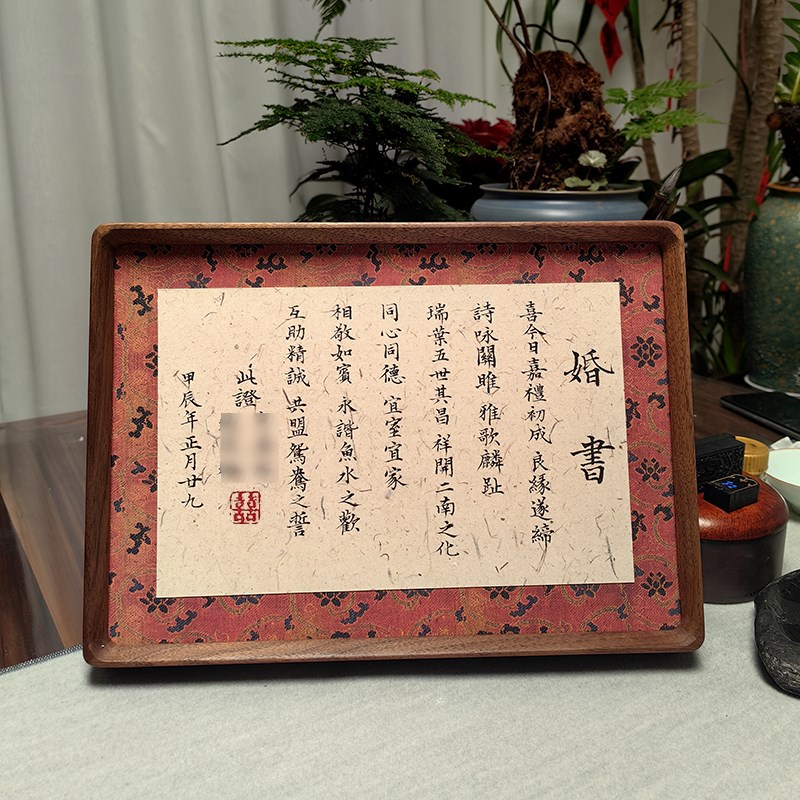 婚書
喜今日嘉禮初成 良緣遂締
詩咏關雎 雅歌麟趾
瑞葉五世其昌 祥開二南之化
同心同德 宜室宜家
相敬如賓 永諧魚水之歡
互助精誠 共盟鴛鴦之誓
此證
囍
甲辰年正月廿九